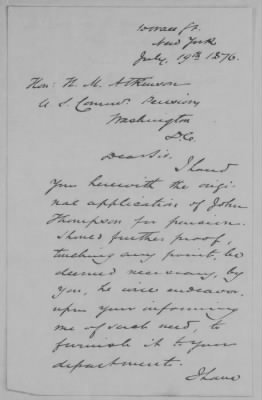 New York
July, 19th 1876.
Hon: H. M. Atkinson
U. S. Commr. Pensions
Washington
D.C.
Dear Sir, I hand
you herewith the origi-
nal application of John
Thompson for pension.
Should further proof,
touching any point, be
deemed necessary, by
you, he will endeavor
upon your informing
me of such need, to
furnish it to your
department.
I have